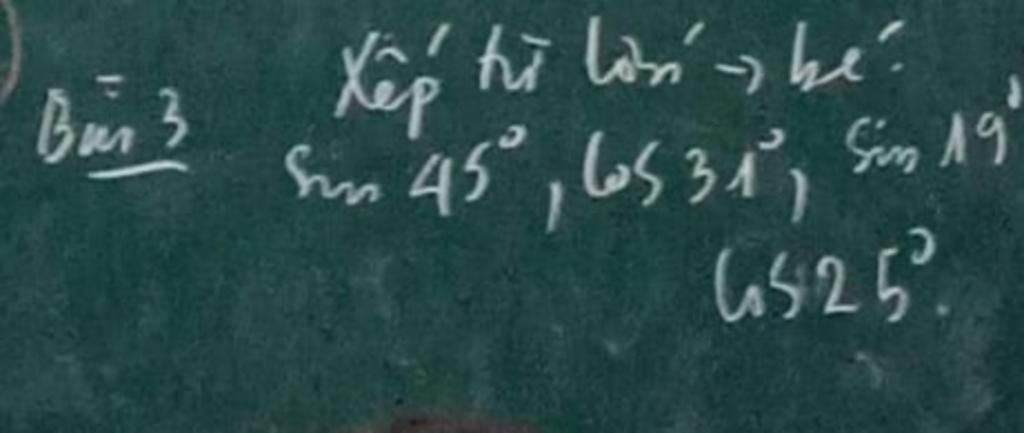 Bài 3 Xếp từ lớn → bé:
Sin 45°, Cos 31°, Sin 19°
Cos 25°.